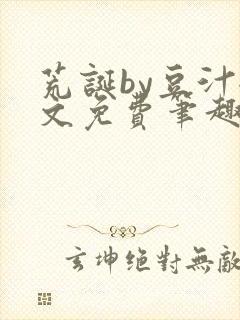 荒誕by豆汁
文免費筆趣
玄坤絕對無敵